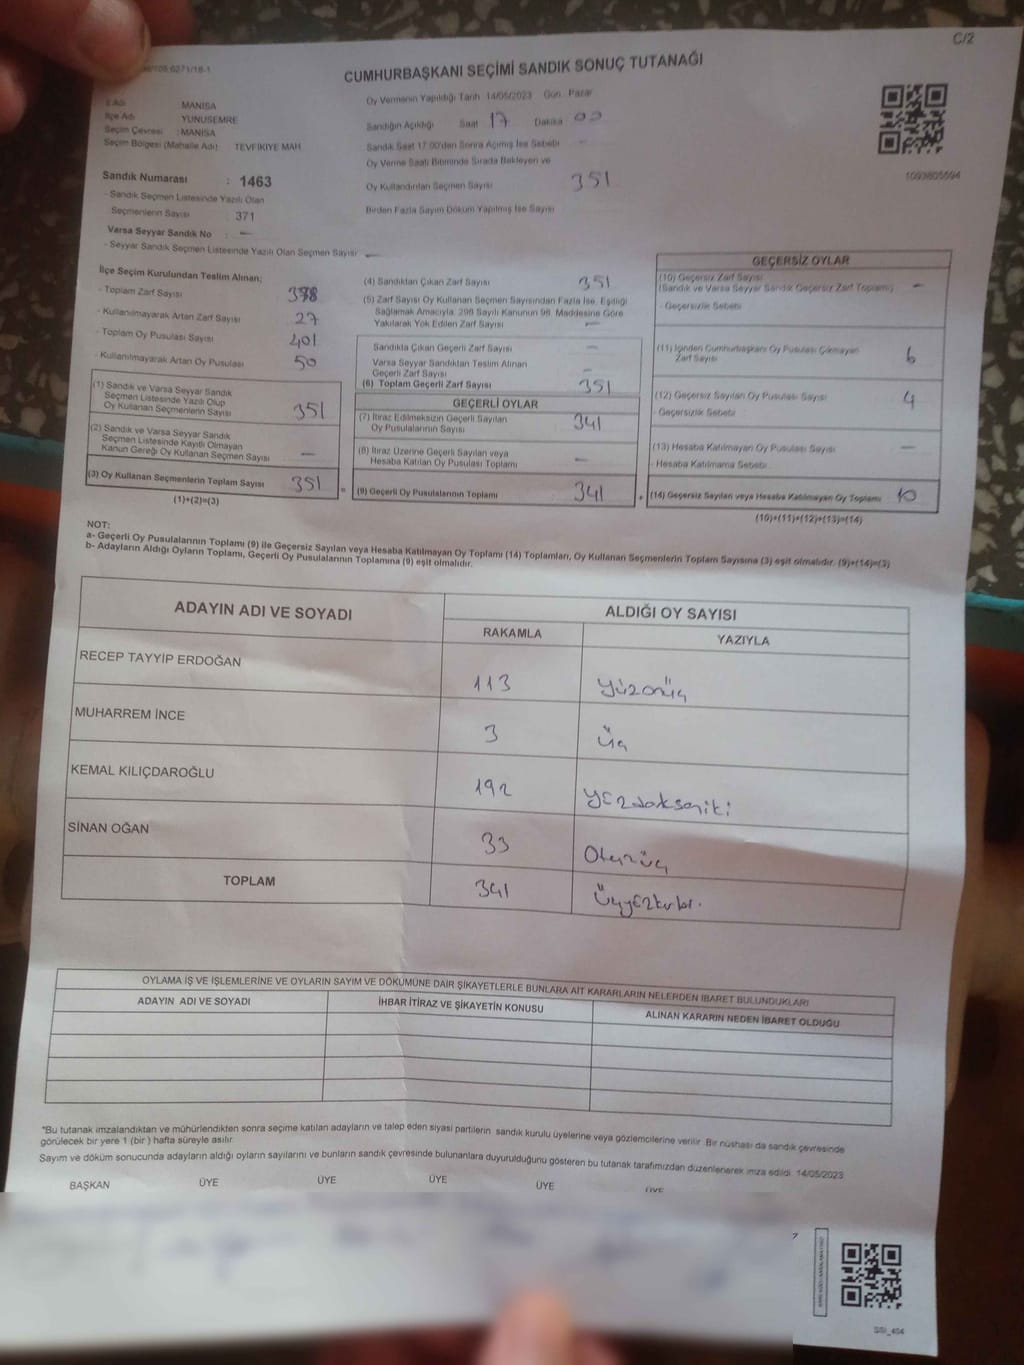 C/2
CUMHURBAŞKANI SEÇİMİ SANDIK SONUÇ TUTANAĞI
MANİSA
İlçe Adı YUNUSEMRE
Seçim Çevresi : MANİSA
Seçim Bölgesi (Mahalle Adı) TEVFİKİYE MAH
Sandık Numarası : 1463
- Sandık Seçmen Listesinde Yazılı Olan
Seçmenlerin Sayısı 371
Varsa Seyyar Sandık No : —
- Seyyar Sandık Seçmen Listesinde Yazılı Olan Seçmen Sayısı —
Oy Vermenin Yapıldığı Tarih 14/05/2023 Gün Pazar
Sandığın Açıldığı Saat 17 Dakika 00
Sandık Saat 17:00'den Sonra Açılmış İse Sebebi —
Oy Verme Saati Bitiminde Sırada Bekleyen ve
Oy Kullandırılan Seçmen Sayısı 351
Birden Fazla Sayım Döküm Yapılmış İse Sayısı
1093605594
İlçe Seçim Kurulundan Teslim Alınan;
- Toplam Zarf Sayısı 378
- Kullanılmayarak Artan Zarf Sayısı 27
- Toplam Oy Pusulası Sayısı 401
- Kullanılmayarak Artan Oy Pusulası 50
(1) Sandık ve Varsa Seyyar Sandık
Seçmen Listesinde Yazılı Olup
Oy Kullanan Seçmenlerin Sayısı 351
(2) Sandık ve Varsa Seyyar Sandık
Seçmen Listesinde Kayıtlı Olmayan
Kanun Gereği Oy Kullanan Seçmen Sayısı —
(3) Oy Kullanan Seçmenlerin Toplam Sayısı 351
(1)+(2)=(3)
(4) Sandıktan Çıkan Zarf Sayısı 351
(5) Zarf Sayısı Oy Kullanan Seçmen Sayısından Fazla İse, Eşitliği
Sağlamak Amacıyla, 298 Sayılı Kanunun 98. Maddesine Göre
Yakılarak Yok Edilen Zarf Sayısı —
Sandıkta Çıkan Geçerli Zarf Sayısı —
Varsa Seyyar Sandıktan Teslim Alınan
Geçerli Zarf Sayısı —
(6) Toplam Geçerli Zarf Sayısı 351
GEÇERLİ OYLAR
(7) İtiraz Edilmeksizin Geçerli Sayılan
Oy Pusulalarının Sayısı 341
(8) İtiraz Üzerine Geçerli Sayılan veya
Hesaba Katılan Oy Pusulası Toplamı —
= (9) Geçerli Oy Pusulalarının Toplamı 341
GEÇERSİZ OYLAR
(10) Geçersiz Zarf Sayısı
(Sandık ve Varsa Seyyar Sandık Geçersiz Zarf Toplamı) —
- Geçersizlik Sebebi
(11) İçinden Cumhurbaşkanı Oy Pusulası Çıkmayan
Zarf Sayısı 6
(12) Geçersiz Sayılan Oy Pusulası Sayısı 4
- Geçersizlik Sebebi
(13) Hesaba Katılmayan Oy Pusulası Sayısı —
- Hesaba Katılmama Sebebi
+ (14) Geçersiz Sayılan veya Hesaba Katılmayan Oy Toplamı 10
(10)+(11)+(12)+(13)=(14)
NOT:
a- Geçerli Oy Pusulalarının Toplamı (9) ile Geçersiz Sayılan veya Hesaba Katılmayan Oy Toplamı (14) Toplamları, Oy Kullanan Seçmenlerin Toplam Sayısına (3) eşit olmalıdır. (9)+(14)=(3)
b- Adayların Aldığı Oyların Toplamı, Geçerli Oy Pusulalarının Toplamına (9) eşit olmalıdır.
ADAYIN ADI VE SOYADI ALDIĞI OY SAYISI
RAKAMLA YAZIYLA
RECEP TAYYİP ERDOĞAN 113 Yüzonüç
MUHARREM İNCE 3 Üç
KEMAL KILIÇDAROĞLU 192 Yüzdoksaniki
SİNAN OĞAN 33 Otuzüç
TOPLAM 341 Üçyüzkırkbir.
OYLAMA İŞ VE İŞLEMLERİNE VE OYLARIN SAYIM VE DÖKÜMÜNE DAİR ŞİKAYETLERLE BUNLARA AİT KARARLARIN NELERDEN İBARET BULUNDUKLARI
ADAYIN ADI VE SOYADI İHBAR İTİRAZ VE ŞİKAYETİN KONUSU ALINAN KARARIN NEDEN İBARET OLDUĞU
"Bu tutanak imzalandıktan ve mühürlendikten sonra seçime katılan adayların ve talep eden siyasi partilerin sandık kurulu üyelerine veya gözlemcilerine verilir. Bir nüshası da sandık çevresinde
görülecek bir yere 1 (bir ) hafta süreyle asılır.
Sayım ve döküm sonucunda adayların aldığı oyların sayılarını ve bunların sandık çevresinde bulunanlara duyurulduğunu gösteren bu tutanak tarafımızdan düzenlenerek imza edildi. 14/05/2023
BAŞKAN ÜYE ÜYE ÜYE ÜYE ÜYE
SSI_404